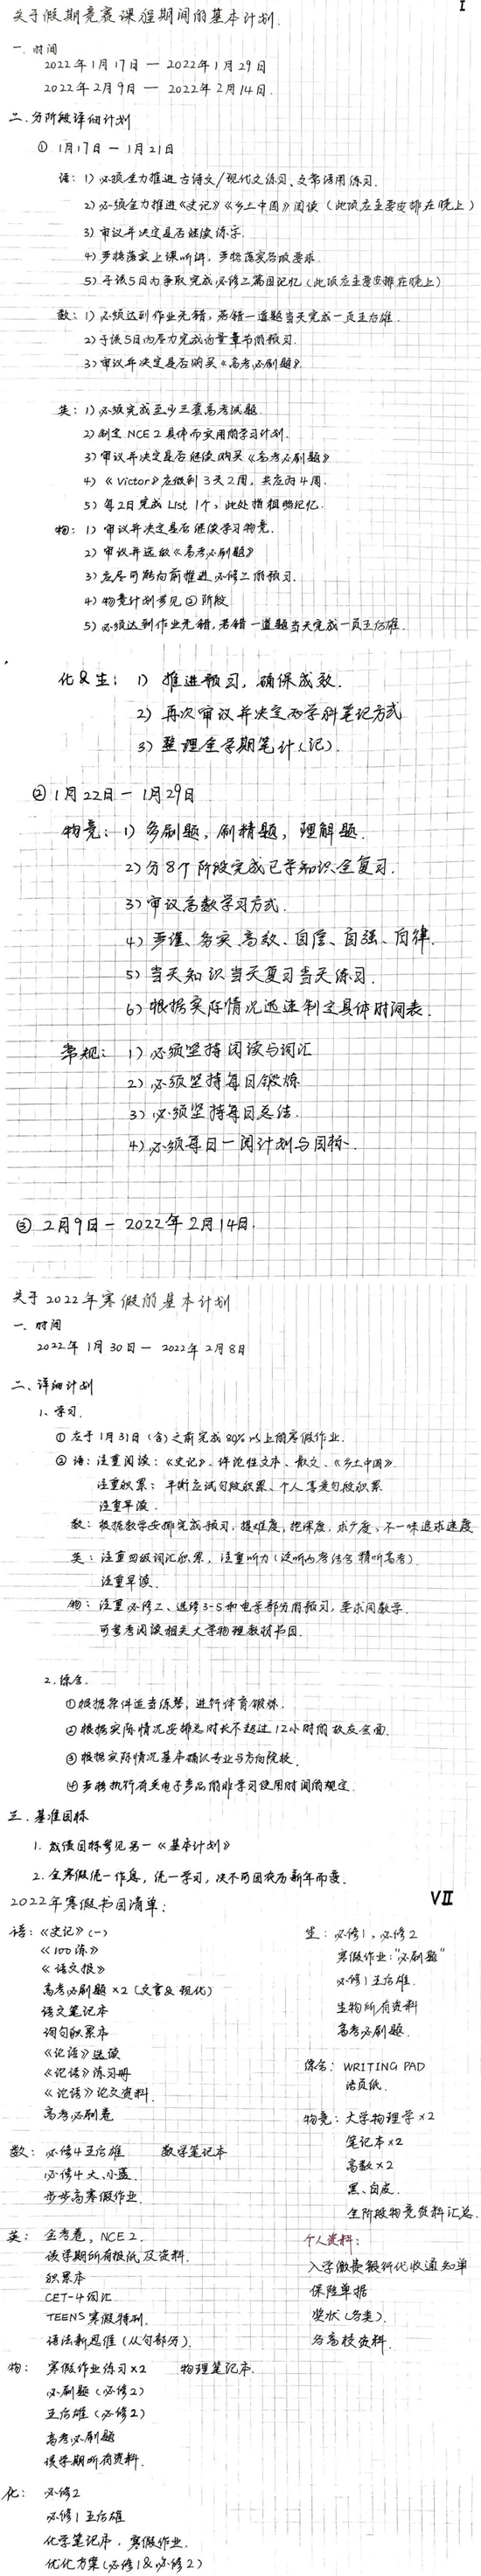 I
关于假期竞赛课程期间的基本计划.
一. 时间
2022年1月17日 — 2022年1月29日
2022年2月9日 — 2022年2月14日.
二. 分阶段详细计划
① 1月17日 — 1月21日
语: 1) 必须全力推进古诗文/现代文练习、文常活用练习.
2) 必须全力推进《史记》《乡土中国》阅读 (此项应主要安排在晚上)
3) 审议并决定是否继续练字.
4) 严格落实上课听讲, 严格落实各项要求.
5) 于该5日内争取完成必修二篇目记忆 (此项应主要安排在晚上)
数: 1) 必须达到作业无错, 若错一道题当天完成一页王后雄.
2) 于该5日内尽力完成向量章节的预习.
3) 审议并决定是否购买《高考必刷题》
英: 1) 必须完成至少三套高考试题.
2) 制定NCE 2具体而实用的学习计划.
3) 审议并决定是否继续购买《高考必刷题》
4) 《Victor》应做到3天2周, 共应为4周.
5) 每2日完成List 1个, 此处指粗略记忆.
物: 1) 审议并决定是否继续学习物竞.
2) 审议并选做《高考必刷题》
3) 应尽可能向前推进必修二的预习.
4) 物竞计划参见②阶段
5) 必须达到作业无错, 若错一道题当天完成一页王后雄.
化&生: 1) 推进预习, 确保成效.
2) 再次审议并决定两学科笔记方式
3) 整理全学期笔计(记).
② 1月22日 — 1月29日
物竞: 1) 多刷题, 刷精题, 理解题.
2) 分8个阶段完成已学知识全复习.
3) 审议高数学习方式.
4) 严谨、务实、高效、自信、自强、自律.
5) 当天知识当天复习当天练习.
6) 根据实际情况迅速制定具体时间表.
常规: 1) 必须坚持阅读与词汇
2) 必须坚持每日锻炼
3) 必须坚持每日总结.
4) 必须每日一阅计划与目标.
③ 2月9日 — 2022年2月14日.
关于2022年寒假的基本计划
一. 时间
2022年1月30日 — 2022年2月8日
二、详细计划
1. 学习.
① 应于1月31日(含)之前完成80%以上的寒假作业.
② 语: 注重阅读: 《史记》、评论性文本、散文、《乡土中国》.
注重积累: 平衡应试句段积累、个人喜爱句段积累
注重早读.
数: 根据教学安排完成预习, 提难度, 把深度, 求广度, 不一味追求速度
英: 注重四级词汇积累, 注重听力 (泛听为考结合精听高考)
注重早读.
物: 注重必修2、选修3-5和电学部分的预习, 要求同数学.
可参考阅读相关大学物理教材书目.
2. 综合.
① 根据条件适当练琴, 进行体育锻炼.
② 根据实际情况安排总时长不超过12小时的故友会面.
③ 根据实际情况基本确认专业与方向院校.
④ 严格执行有关电子产品的非学习使用时间的规定.
三. 基准目标
1. 成绩目标参见另一《基本计划》
2. 全寒假统一作息, 统一学习, 决不可因农历新年而变.
VII
2022年寒假书目清单:
语: 《史记》(一)
《100练》
《语文报》
高考必刷题×2 (文言&现代)
语文笔记本
词句积累本
《论语》选读
《论语》练习册
《论语》论文资料.
高考必刷卷
数: 必修4王后雄 数学笔记本
必修4大、小蓝.
步步高寒假作业.
英: 金考卷, NCE 2.
该学期所有报纸及资料.
积累本
CET-4词汇
TEENS寒假特刊.
语法新思维 (从句部分).
物: 寒假作业练习×2 物理笔记本.
必刷题 (必修2)
王后雄 (必修2)
高考必刷题
该学期所有资料.
化: 必修2
必修1王后雄
化学笔记本, 寒假作业.
优化方案 (必修1&必修2)
生: 必修1, 必修2
寒假作业: “必刷题”
必修1王后雄.
生物所有资料
高考必刷题.
综合: WRITING PAD
活页纸.
物竞: 大学物理学×2
笔记本×2
高数×2
黑、白皮.
全阶段物竞资料汇总.
个人资料:
入学缴费银行代收通知单
保险单据
奖状 (各类).
各高校资料.